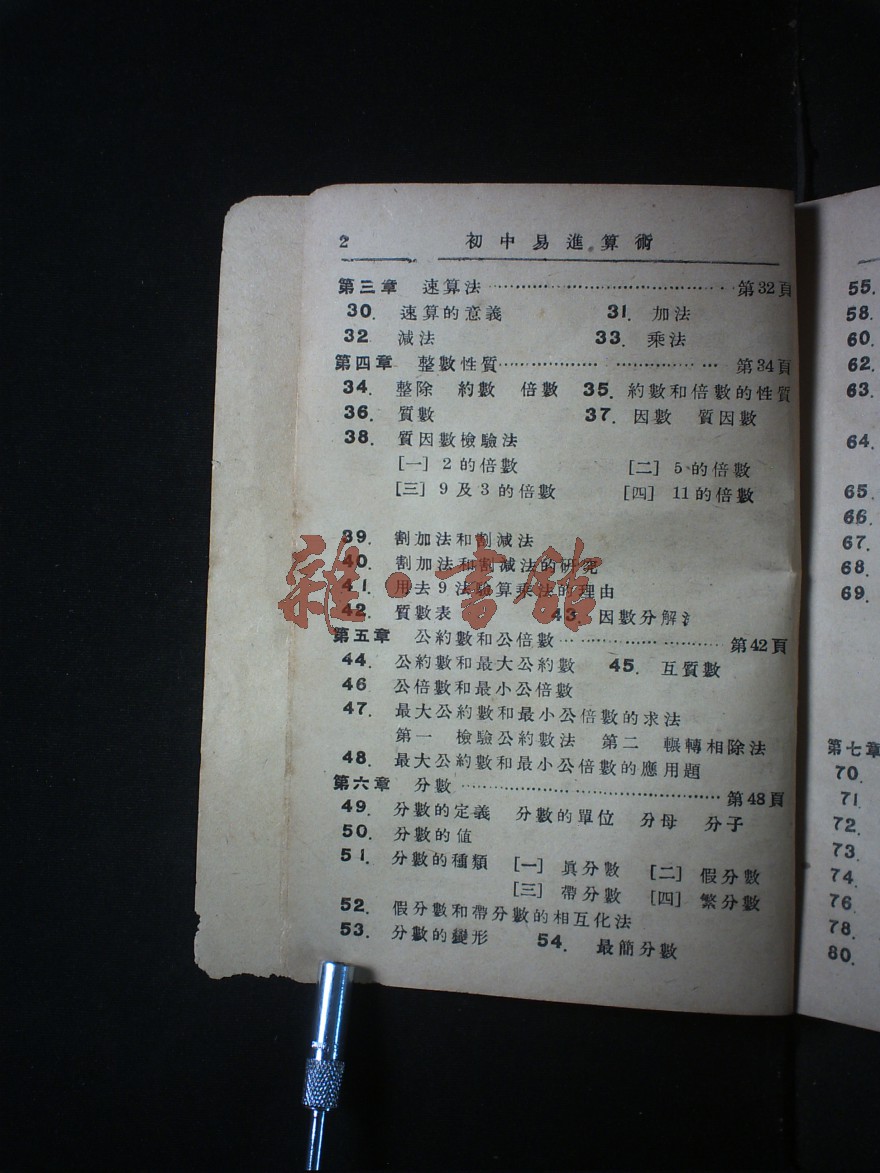 2 初中易進算術
第三章 速算法 第32頁
30. 速算的意義 31. 加法
32 減法 33. 乘法
第四章 整數性質 第34頁
34. 整除 約數 倍數 35. 約數和倍數的性質
36. 質數 37. 因數 質因數
38. 質因數檢驗法
[一] 2的倍數 [二] 5的倍數
[三] 9及3的倍數 [四] 11的倍數
39. 割加法和割減法
40. 割加法和割減法的研究
41. 用去9法驗算乘法的理由
42. 質數表 43. 因數分解法
第五章 公約數和公倍數 第42頁
44. 公約數和最大公約數 45. 互質數
46 公倍數和最小公倍數
47. 最大公約數和最小公倍數的求法
第一 檢驗公約數法 第二 輾轉相除法
48. 最大公約數和最小公倍數的應用題
第六章 分數 第48頁
49. 分數的定義 分數的單位 分母 分子
50. 分數的值
51. 分數的種類 [一] 眞分數 [二] 假分數
[三] 帶分數 [四] 繁分數
52. 假分數和帶分數的相互化法
53. 分數的變形 54. 最簡分數
雜·書館
55.
58.
60.
62.
63.
64.
65.
66.
67.
68.
69.
第七章
70.
71
72.
73.
74.
76.
78.
80.